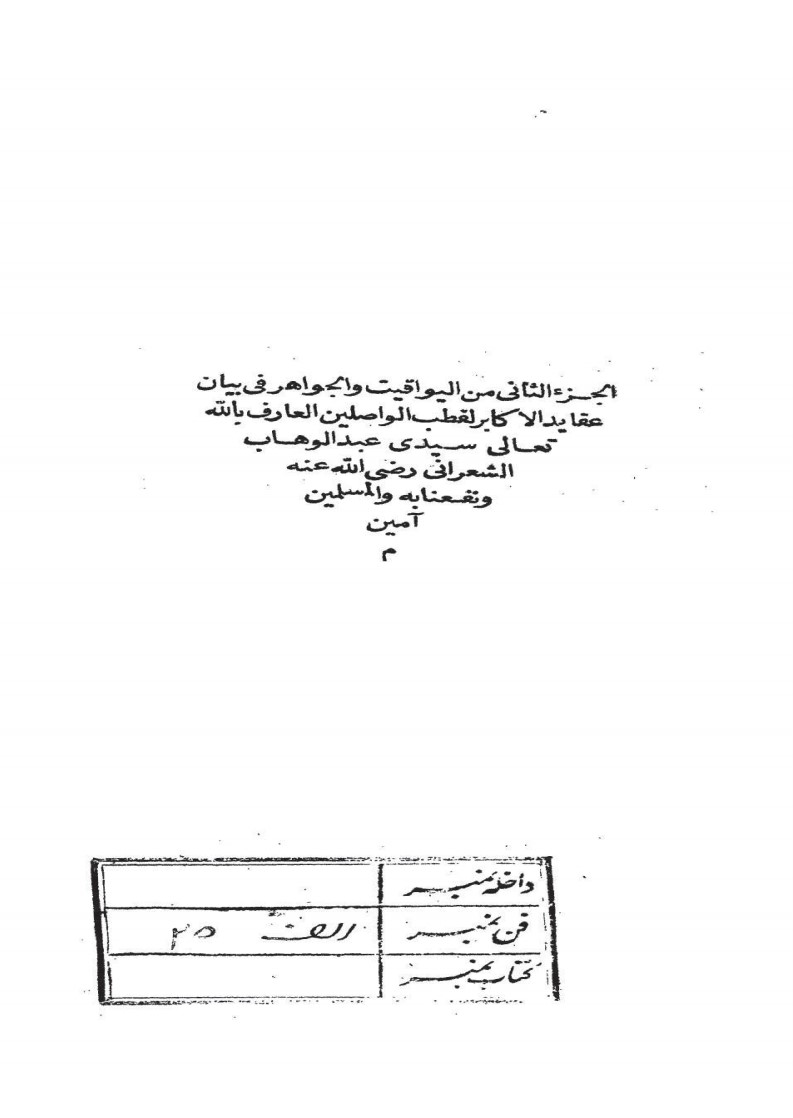 الجزء الثانى من اليواقيت والجواهر فى بيان
عقايد الاكابر لقطب الواصلين العارف بالله
تعالى سيدى عبدالوهاب
الشعرانى رضى الله عنه
ونفعنابه والمسلمين
آمين
م
داخلہ نمبر
فن نمبر الف
کتاب نمبر